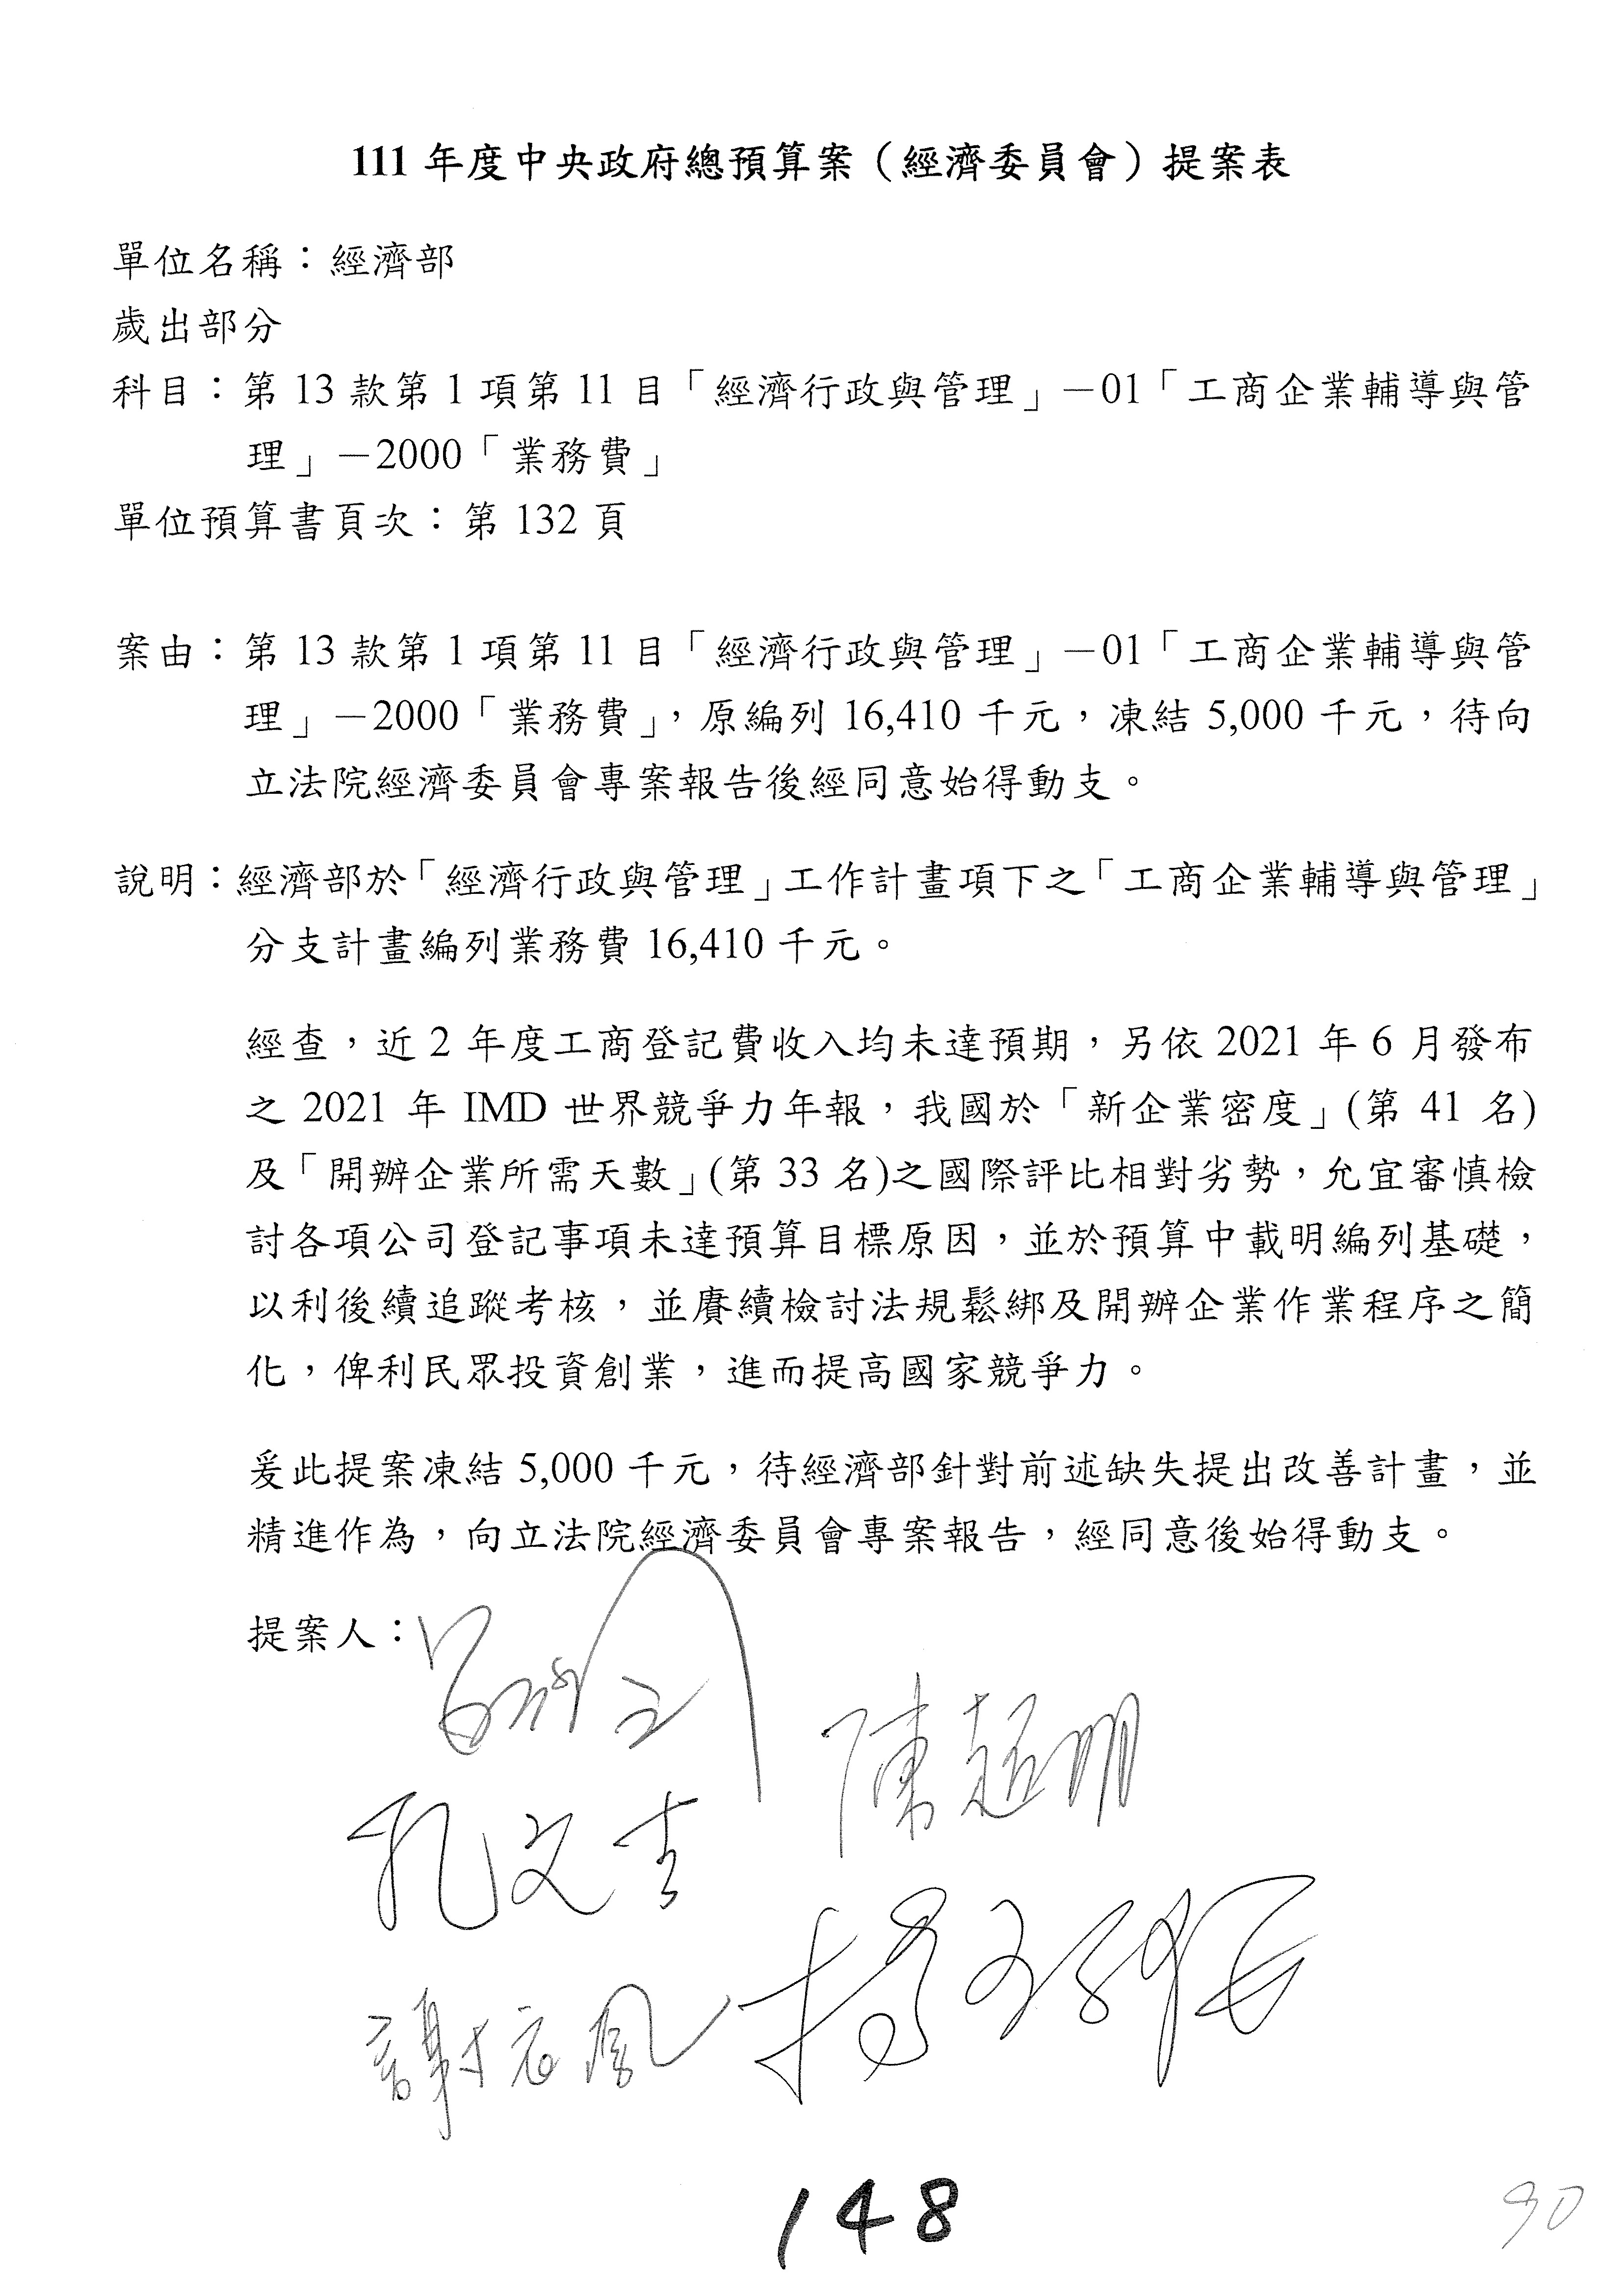 111 年度中央政府總預算案（經濟委員會）提案表
單位名稱：經濟部
歲出部分
科目：第 13 款第 1 項第 11 目「經濟行政與管理」－01「工商企業輔導與管
理」－2000「業務費」
單位預算書頁次：第 132 頁
案由：第 13 款第 1 項第 11 目「經濟行政與管理」－01「工商企業輔導與管
理」－2000「業務費」，原編列 16,410 千元，凍結 5,000 千元，待向
立法院經濟委員會專案報告後經同意始得動支。
說明：經濟部於「經濟行政與管理」工作計畫項下之「工商企業輔導與管理」
分支計畫編列業務費 16,410 千元。
經查，近 2 年度工商登記費收入均未達預期，另依 2021 年 6 月發布
之 2021 年 IMD 世界競爭力年報，我國於「新企業密度」(第 41 名)
及「開辦企業所需天數」(第 33 名)之國際評比相對劣勢，允宜審慎檢
討各項公司登記事項未達預算目標原因，並於預算中載明編列基礎，
以利後續追蹤考核，並賡續檢討法規鬆綁及開辦企業作業程序之簡
化，俾利民眾投資創業，進而提高國家競爭力。
爰此提案凍結 5,000 千元，待經濟部針對前述缺失提出改善計畫，並
精進作為，向立法院經濟委員會專案報告，經同意後始得動支。
提案人：
陳超明
孔文吉
謝衣鳳
148
90